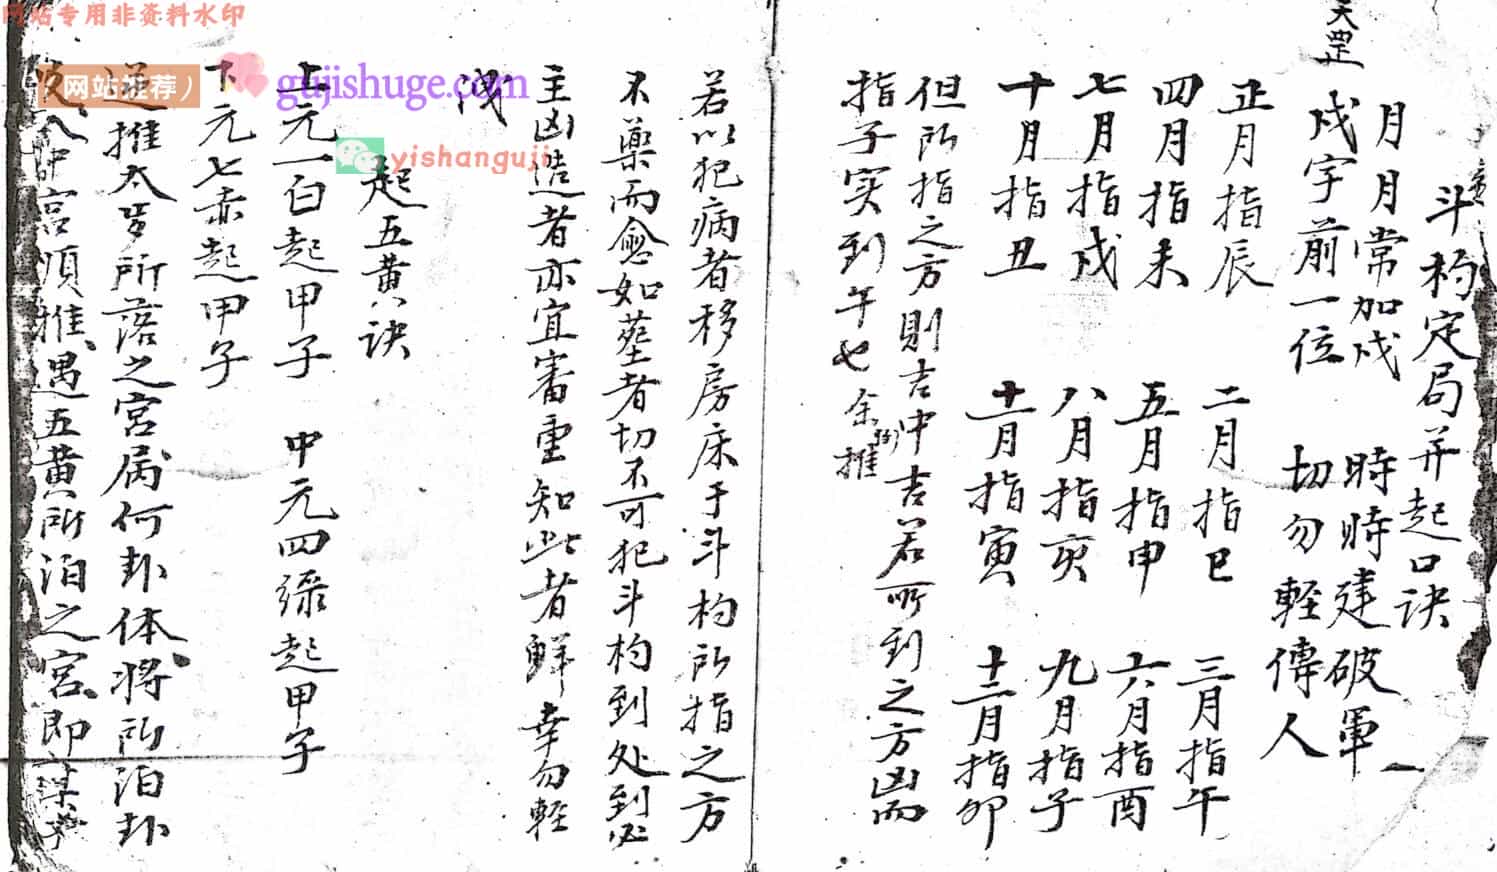 天罡
斗杓定局并起口诀
月月常加戍 時時建破軍
戍字前一位 切勿輕傳人
正月指辰 二月指巳 三月指午
四月指未 五月指申 六月指酉
七月指戍 八月指亥 九月指子
十月指丑 十一月指寅 十二月指卯
但所指之方則吉中吉若所到之方凶而
指子实到午也余推
若以犯病者移房床于斗杓所指之方
不藥而愈如塟者切不可犯斗杓到处到必
主凶造者亦宜審重知此者鮮幸勿輕
洩
起五黄诀
上元一白起甲子 中元四绿起甲子
下元七赤起甲子
逆推太岁所落之宫属何卦体将所泊卦
入中宫順推遇五黄所泊之宫即某
网站专用非资料水印
网站推荐）
gujishuge.com
yishanguji